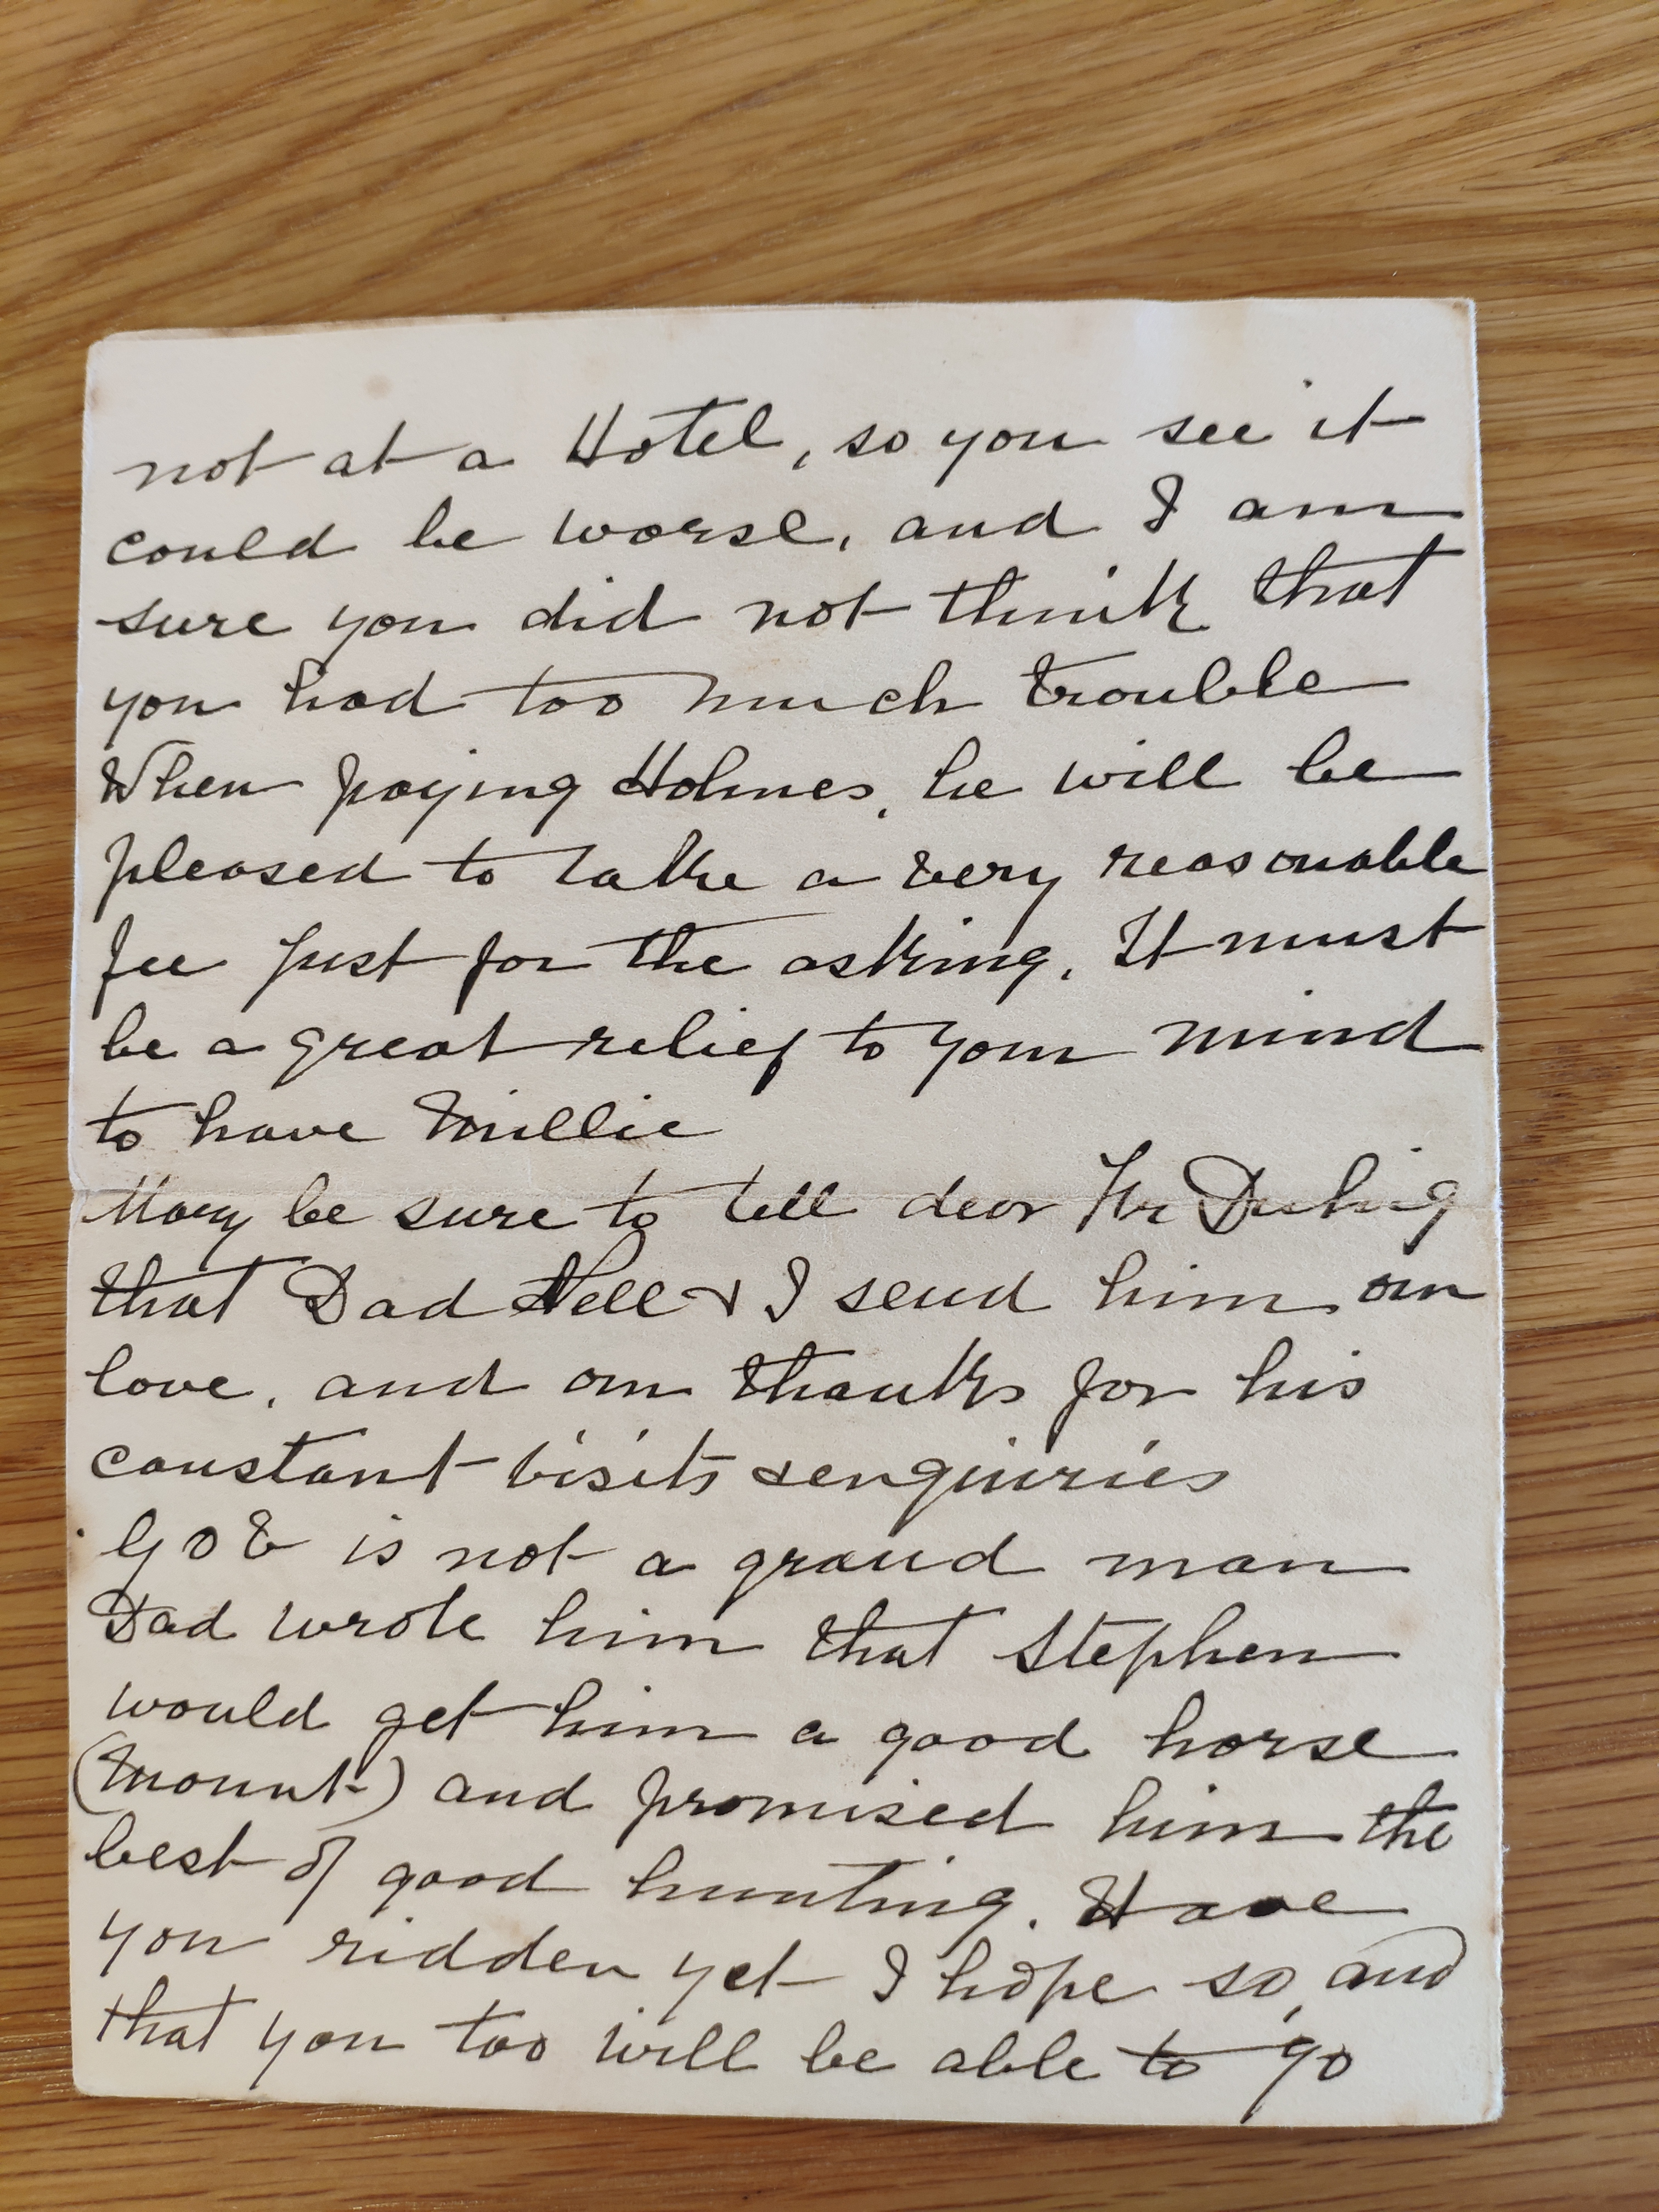 not at a Hotel, so you see it
could be worse, and I am
sure you did not think that
you had too much trouble
When paying Holmes, he will be
pleased to take a very reasonable
fee just for the asking. It must
be a great relief to your mind
to have Millie
Mary be sure to tell dear Fr Duhig
that Dad Nell & I send him our
love, and our thanks for his
constant visits & enquiries
is not a grand man
Dad wrote him that Stephen
would get him a good horse
(mount) and promised him the
best of good hunting. Have
you ridden yet I hope so, and
that you too will be able to go